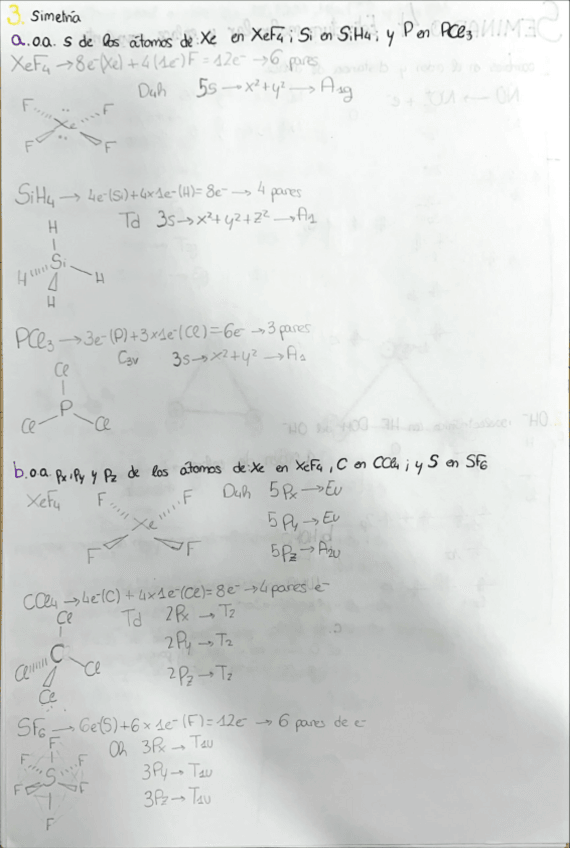 3. Simetría
a. o.a. s de los átomos de: Xe en XeF4; Si en SiH4; y P en PCl3
XeF4 → 8e-(Xe) + 4(1e-)F = 12e- → 6 pares
D4h 5s → x²+y² → A1g
F F
Xe
F F
SiH4 → 4e-(Si) + 4x1e-(H) = 8e- → 4 pares
Td 3s → x²+y²+z² → A1
H
Si
H H
H
PCl3 → 3e-(P) + 3x1e-(Cl) = 6e- → 3 pares
C3v 3s → x²+y² → A1
Cl
P
Cl Cl
b. o.a. px, py y pz de los átomos de: Xe en XeF4, C en CCl4; y S en SF6
XeF4 D4h 5Px → Eu
F F
Xe 5Py → Eu
F F 5Pz → A2u
CCl4 → 4e-(C) + 4x1e-(Cl) = 8e- → 4 pares e-
Td 2Px → T2
Cl
2Py → T2
C
Cl Cl 2Pz → T2
Cl
SF6 → 6e-(S) + 6x1e-(F) = 12e- → 6 pares de e-
Oh 3Px → T1u
F
F F 3Py → T1u
S
F F 3Pz → T1u
F